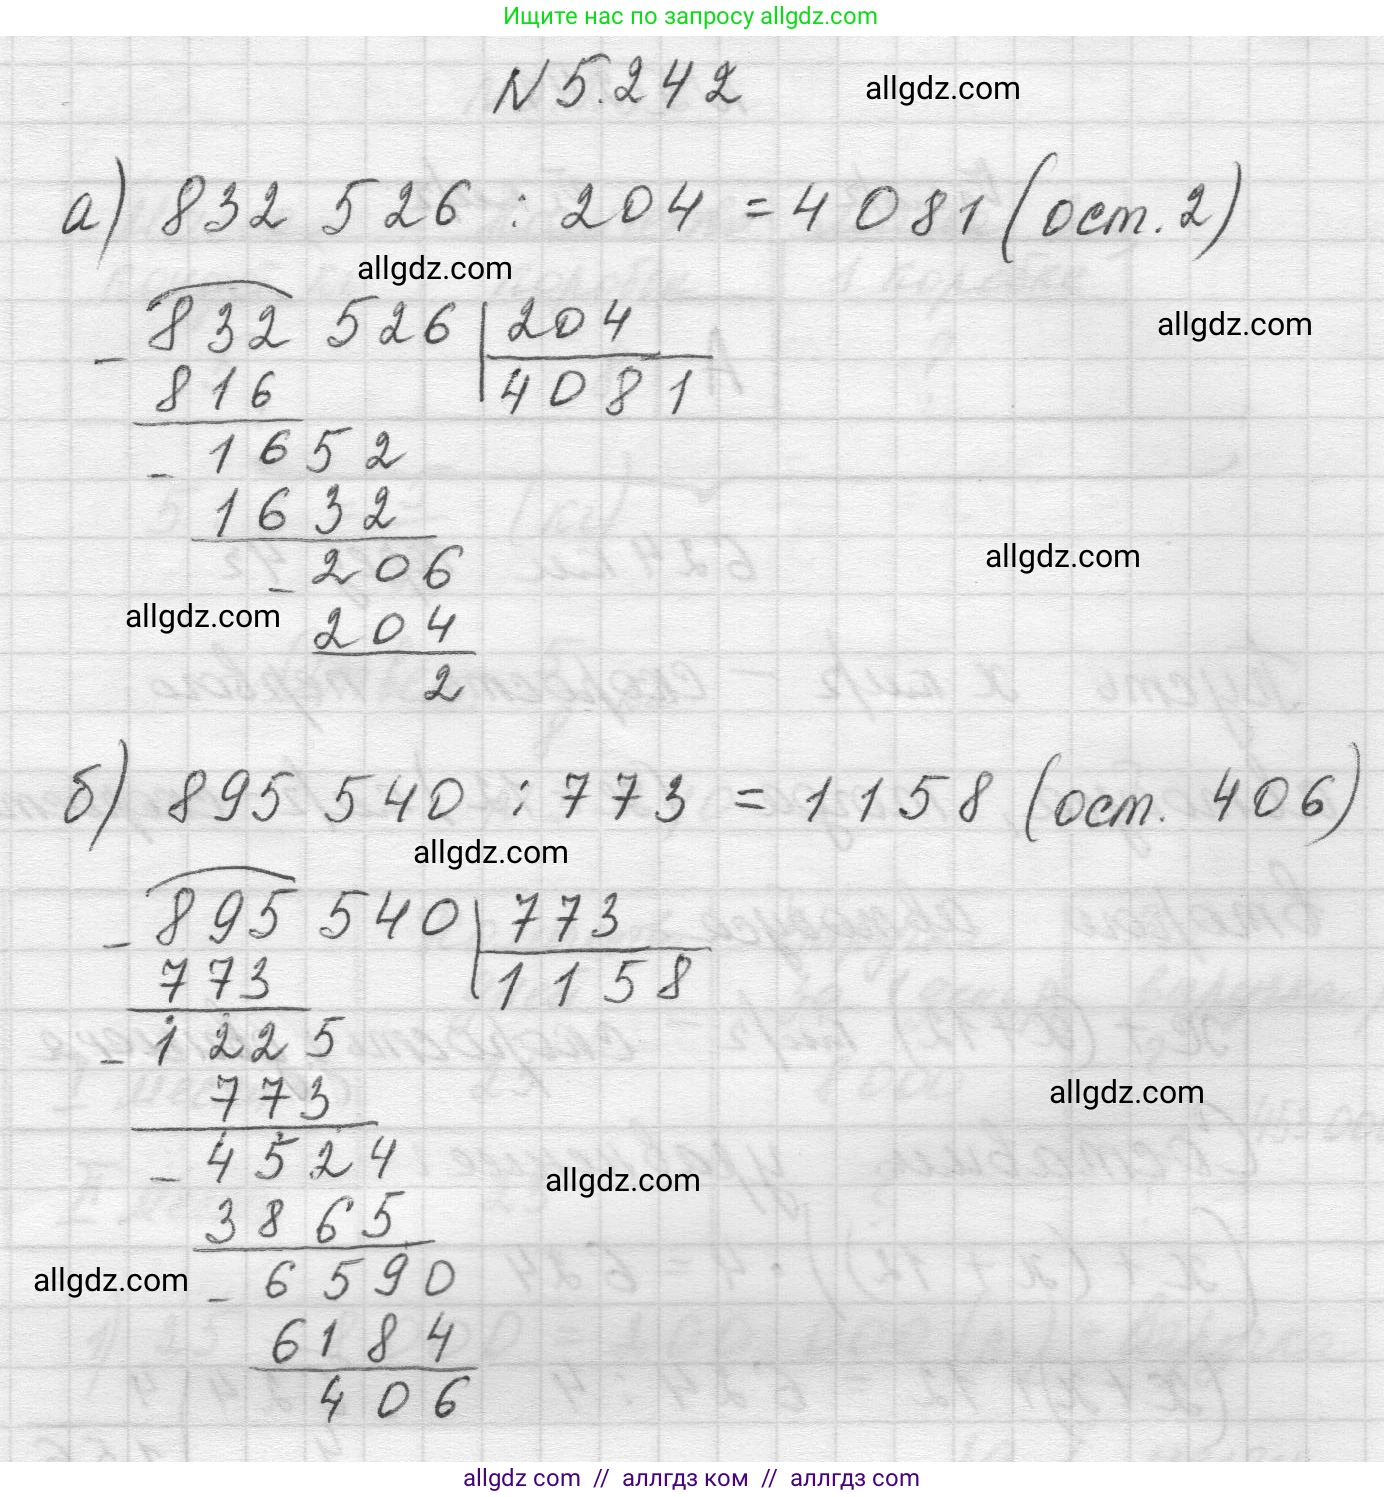 Ищите нас по запросу allgdz.com
N 5.242
allgdz.com
а) 832 526 : 204 = 4081 (ост. 2)
allgdz.com
832 526 | 204
allgdz.com
- 816 | 4081
- 1652
1632
- 206
allgdz.com
allgdz.com
204
2
б) 895 540 : 773 = 1158 (ост. 406)
allgdz.com
- 895 540 | 773
773 | 1158
- 1225
773
allgdz.com
- 4524
allgdz.com
3865
allgdz.com
- 6590
6184
406
allgdz.com // аллгдз ком // аллгдз.com